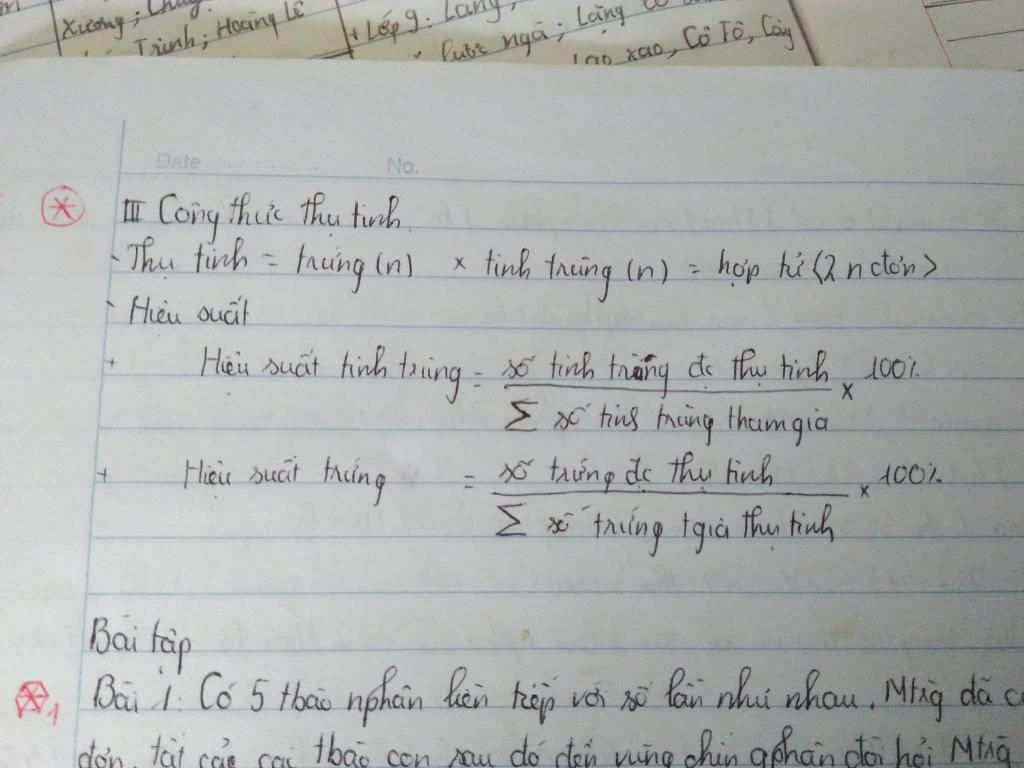 Xương;
Trinh; Hoàng Lê
+ Lớp 9: Làng,
ngã; Lặng
xao, Cô Tô, Cây
Date No.
III Công thức thụ tinh
- Thụ tinh = trứng (n) × tinh trùng (n) = hợp tử <2n đơn>
- Hiệu suất
+ Hiệu suất tinh trùng = số tinh trùng đc thụ tinh × 100%
Σ số tinh trùng tham gia
+ Hiệu suất trứng = số trứng đc thụ tinh × 100%
Σ số trứng tgia thụ tinh
Bài tập
1 Bài 1: Có 5 tbào nphân liên tiếp với số lần như nhau. Mtrg đã
đơn. tất cả các tbào con sau đó đến vùng chín gphân đòi hỏi Mtrg